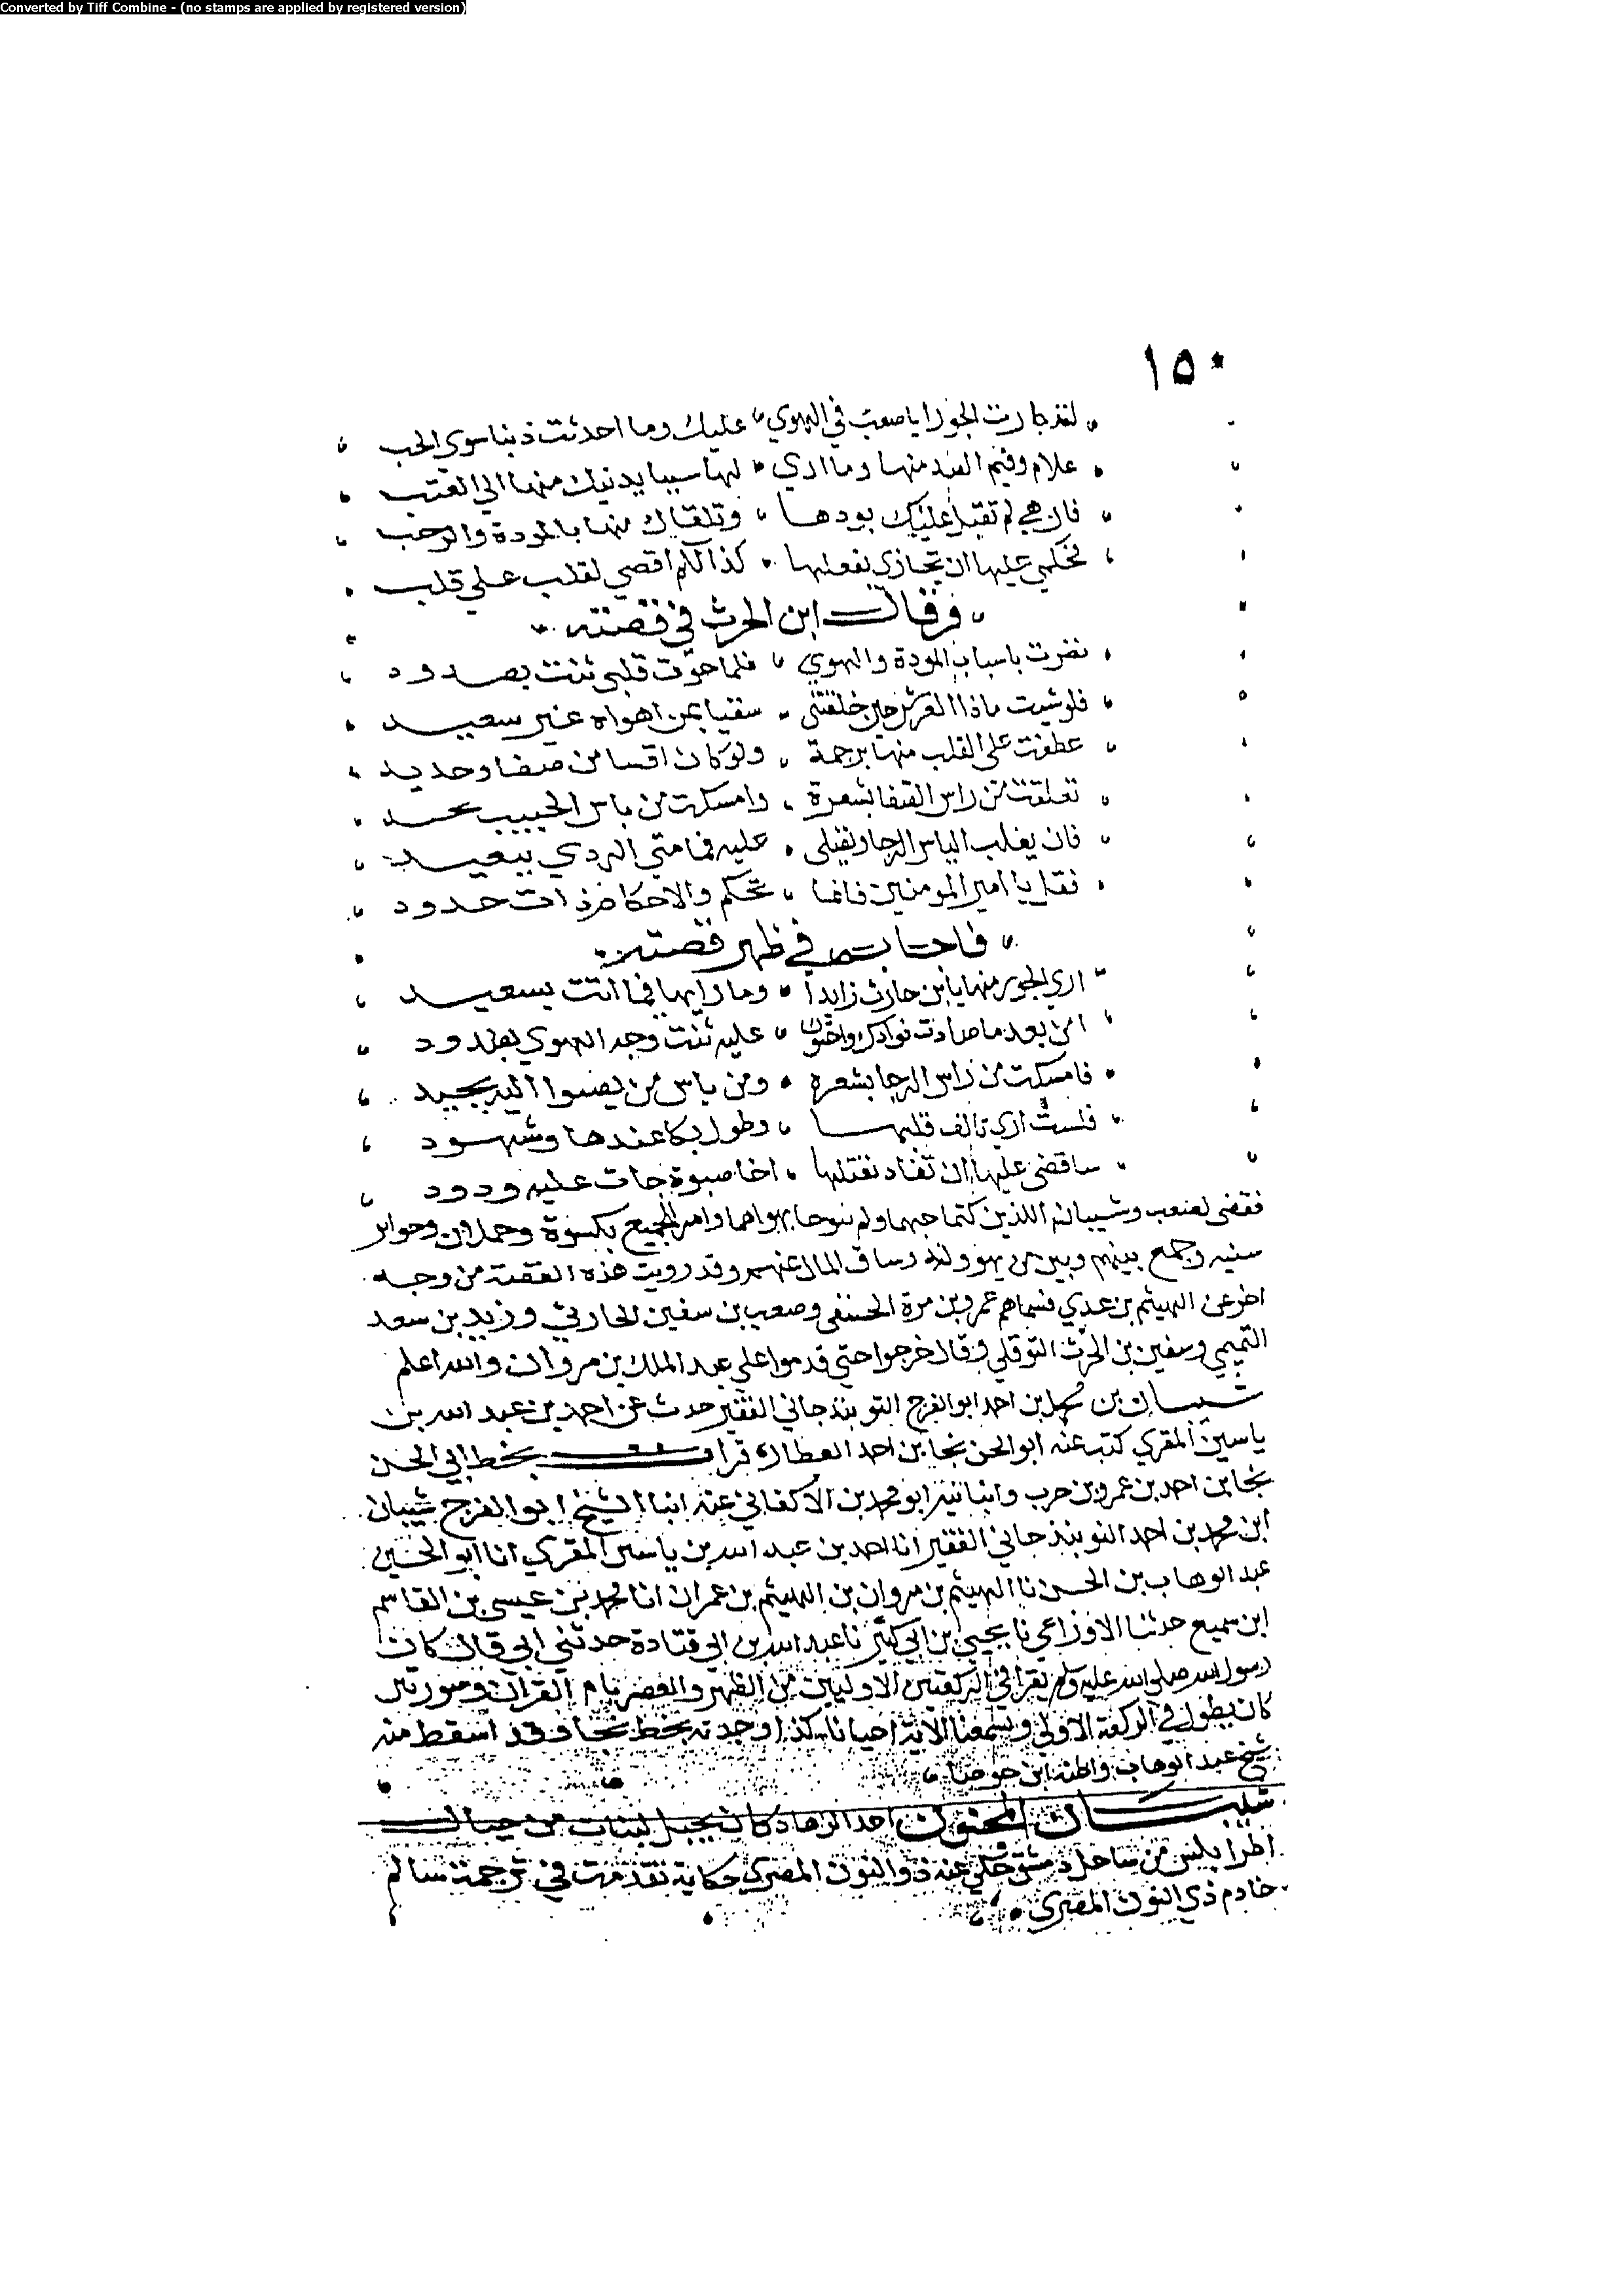 Converted by Tiff Combine - (no stamps are applied by registered version)
١٥٠
لقد جارت الجوزا يا صعب في الهوي عليك وما احدثت ذنبا سوي الحب
علام وفيم الصد منها وما اري لها سببا يدنيك منها الي العتب
فان هي لم تقبل عليك بودها وتلقاك منها بالمودة والرحب
فحكمي عليها ان تجازي بفعلها كذا الحكم اقضي لقلب علي قلب
وقال ابن الحرث في قصته
باسباب المودة والهوي فلما حوت قلبي ثنت بصدود
فلو شيت ياذا العرش حين خلقتني شقيا بمن اهواه غير سعيد
عطفت علي القلب منها برحمة ولو كان اقسا من صفا وحديد
تعلقت من راس القفا بشعرة وامسكت من ياس الحبيب
فان يغلب الياس الرجا ونقبلي عليه فما متي الردي ببعيد
فقل يا امير المومنين فانما تحكم والاحكام ذات حدود
فاجاب في ظهر قصته
اري الجور منها يابن حارث زايدا وما رايها فيما اتت بسعيد
امن بعد ما صادت فوادك واحتوت عليه ثنت وجه الهوي بصدود
فامسكت من راس الرجا بشعرة ومن ياس من يصبوا اليه بجيد
فلست اري تالف قلبها وطول بكا عندها وشهود
ساقضي عليها ان تقاد بقتلها اخا صبوة جات عليه ودود
فقضي لصعب وشيبا لهم اللذين كتما حبهما ولم يبوحا بهواهما وامر للجميع بكسوة وحملان وجوايز
سنيه وجمع بينهم وبين من يهوونه وساق المال عنهم وقد رويت هذه القصة من وجه
اخر عن الهيثم بن عدي فسماهم عمرو بن مرة الحنفي وصعب بن سفين الحارثي وزيد بن سعد
التميمي وسفين بن الحرث النوفلي وقال خرجوا حتي قدموا علي عبد الملك بن مروان والله اعلم
شيبان بن محمد بن احمد ابو الفرج النوبندجاني الفقير حدث عن احمد بن عبد الله بن
ياسين المقري كتب عنه ابو الحسن نجا بن احمد العطار قرات بخط ابي الحسن
نجا بن احمد بن عمرو بن حرب وانبانيه ابو محمد بن الاكفاني عنه انبا الشيخ ابو الفرج شيبان
ابن محمد بن احمد النوبندجاني الفقير انا احمد بن عبد الله بن ياسين المقري انا ابو الحسين
عبد الوهاب بن الحسن نا الهيثم بن مروان بن الهيثم بن عمران انا محمد بن عيسي بن القاسم
ابن سميع حدثنا الاوزاعي نا يحيي بن ابي كثير نا عبد الله بن ابي قتادة حدثني ابي قال كان
رسول الله صلي الله عليه وسلم يقرا في الركعتين الاوليين من الظهر والعصر بام القران وسورتين
كان يطول في الركعة الاولي ويسمعنا الاية احيانا كذا وجدته بخط نجا وقد اسقط منه
شيخ عبد الوهاب واظنه ابن جوصا
شيبان المجنون احد الزهاد كان بجبل لبنان من جبال
اطرابلس من ساحل دمشق حكي عنه ذو النون المصري حكاية تقدمت في ترجمة سالم
خادم ذي النون المصري